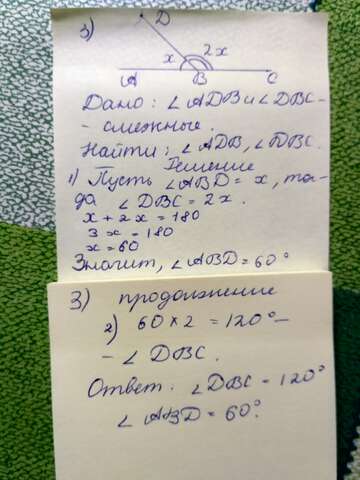 3)
D
x 2x
A B C
Дано: ∠ADB и ∠DBC -
- смежные.
Найти: ∠ADB, ∠DBC.
Решение
1) Пусть ∠ABD = x, то-
да ∠DBC = 2x.
x + 2x = 180
3x = 180
x = 60
Значит, ∠ABD = 60°
3) продолжение
2) 60 × 2 = 120° –
- ∠DBC.
Ответ: ∠DBC = 120°
∠ABD = 60°.